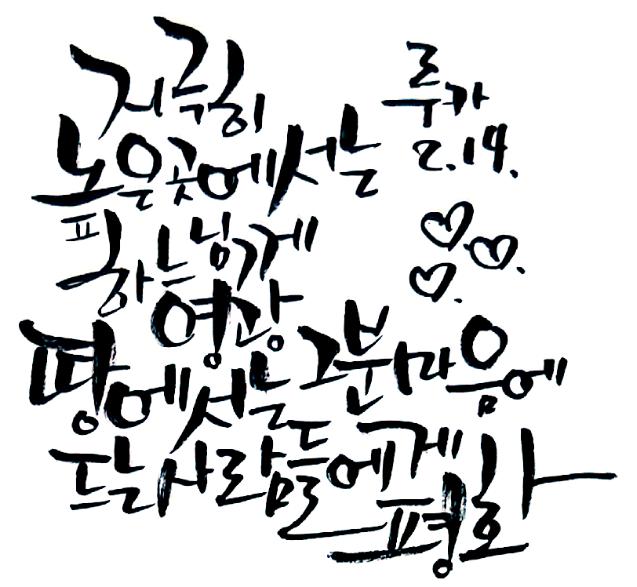 지극히
높은곳에서는
하느님께
영광
땅에서는 그분 마음에
드는 사람들에게
평화
루가
2.14.